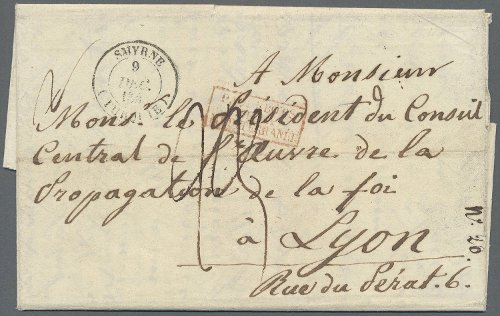 SMYRNE
9
DEC.
(TURQUIE)
A Monsieur
Mons.r le Président du Conseil
Central de l'Œuvre de la
Propagation de la foi
à Lyon
Rue du Pérat. 6.
N. 20.